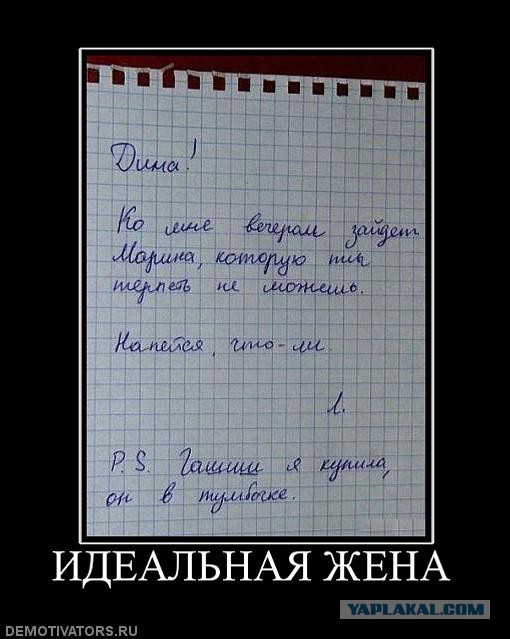 Дима!
Ко мне вечером зайдет
Марина, которую ты
терпеть не можешь.
Напейся, что-ли.
Л.
P.S. Гашиш я купила,
он в тумбочке.
ИДЕАЛЬНАЯ ЖЕНА
YAPLAKAL.COM
DEMOTIVATORS.RU